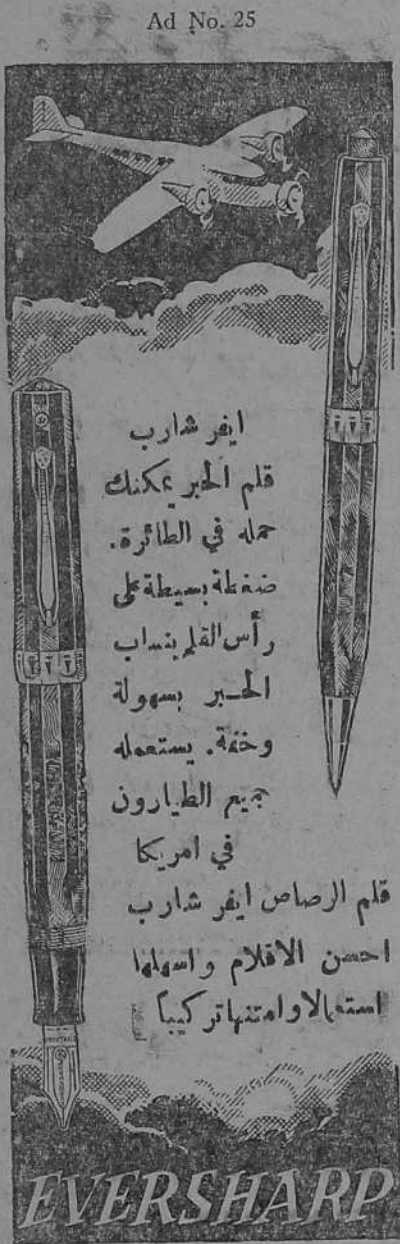 Ad No. 25
ايفر شارب
قلم الحبر يمكنك
حمله في الطائرة.
ضغطة بسيطة على
رأس القلم ينساب
الحـبر بسهولة
وخفة. يستعمله
جميع الطيارون
في امريكا
قلم الرصاص ايفر شارب
احسن الاقلام واسهلها
استعمالا وامتنها تركيباً
EVERSHARP